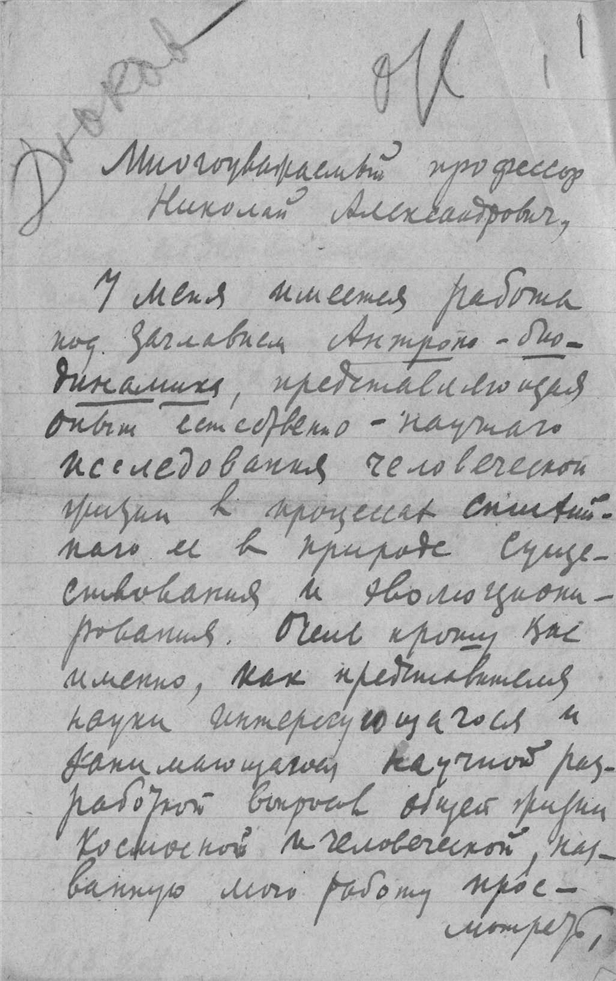 Дюков
1
Многоуважаемый профессор
Николай Александрович,
У меня имеется работа
под заглавием Антропо-био-
динамика, представляющая
опыт естественно-научнаго
исследования человеческой
жизни в процессах стихий-
наго ее в природе суще-
ствования и эволюциони-
рования. Очень прошу Вас
именно, как представителя
науки интересующагося и
занимающагося научной раз-
работкой вопросов общей жизни
космосной и человеческой, наз-
ванную мою работу прос-
мотреть,